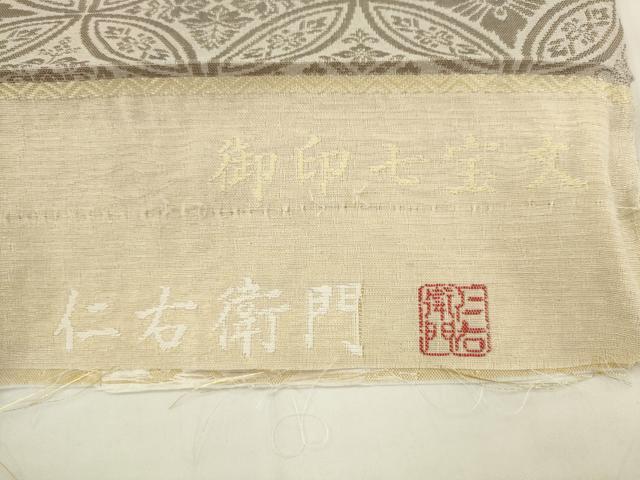 御印七宝文
仁右衛門
仁右
衛門